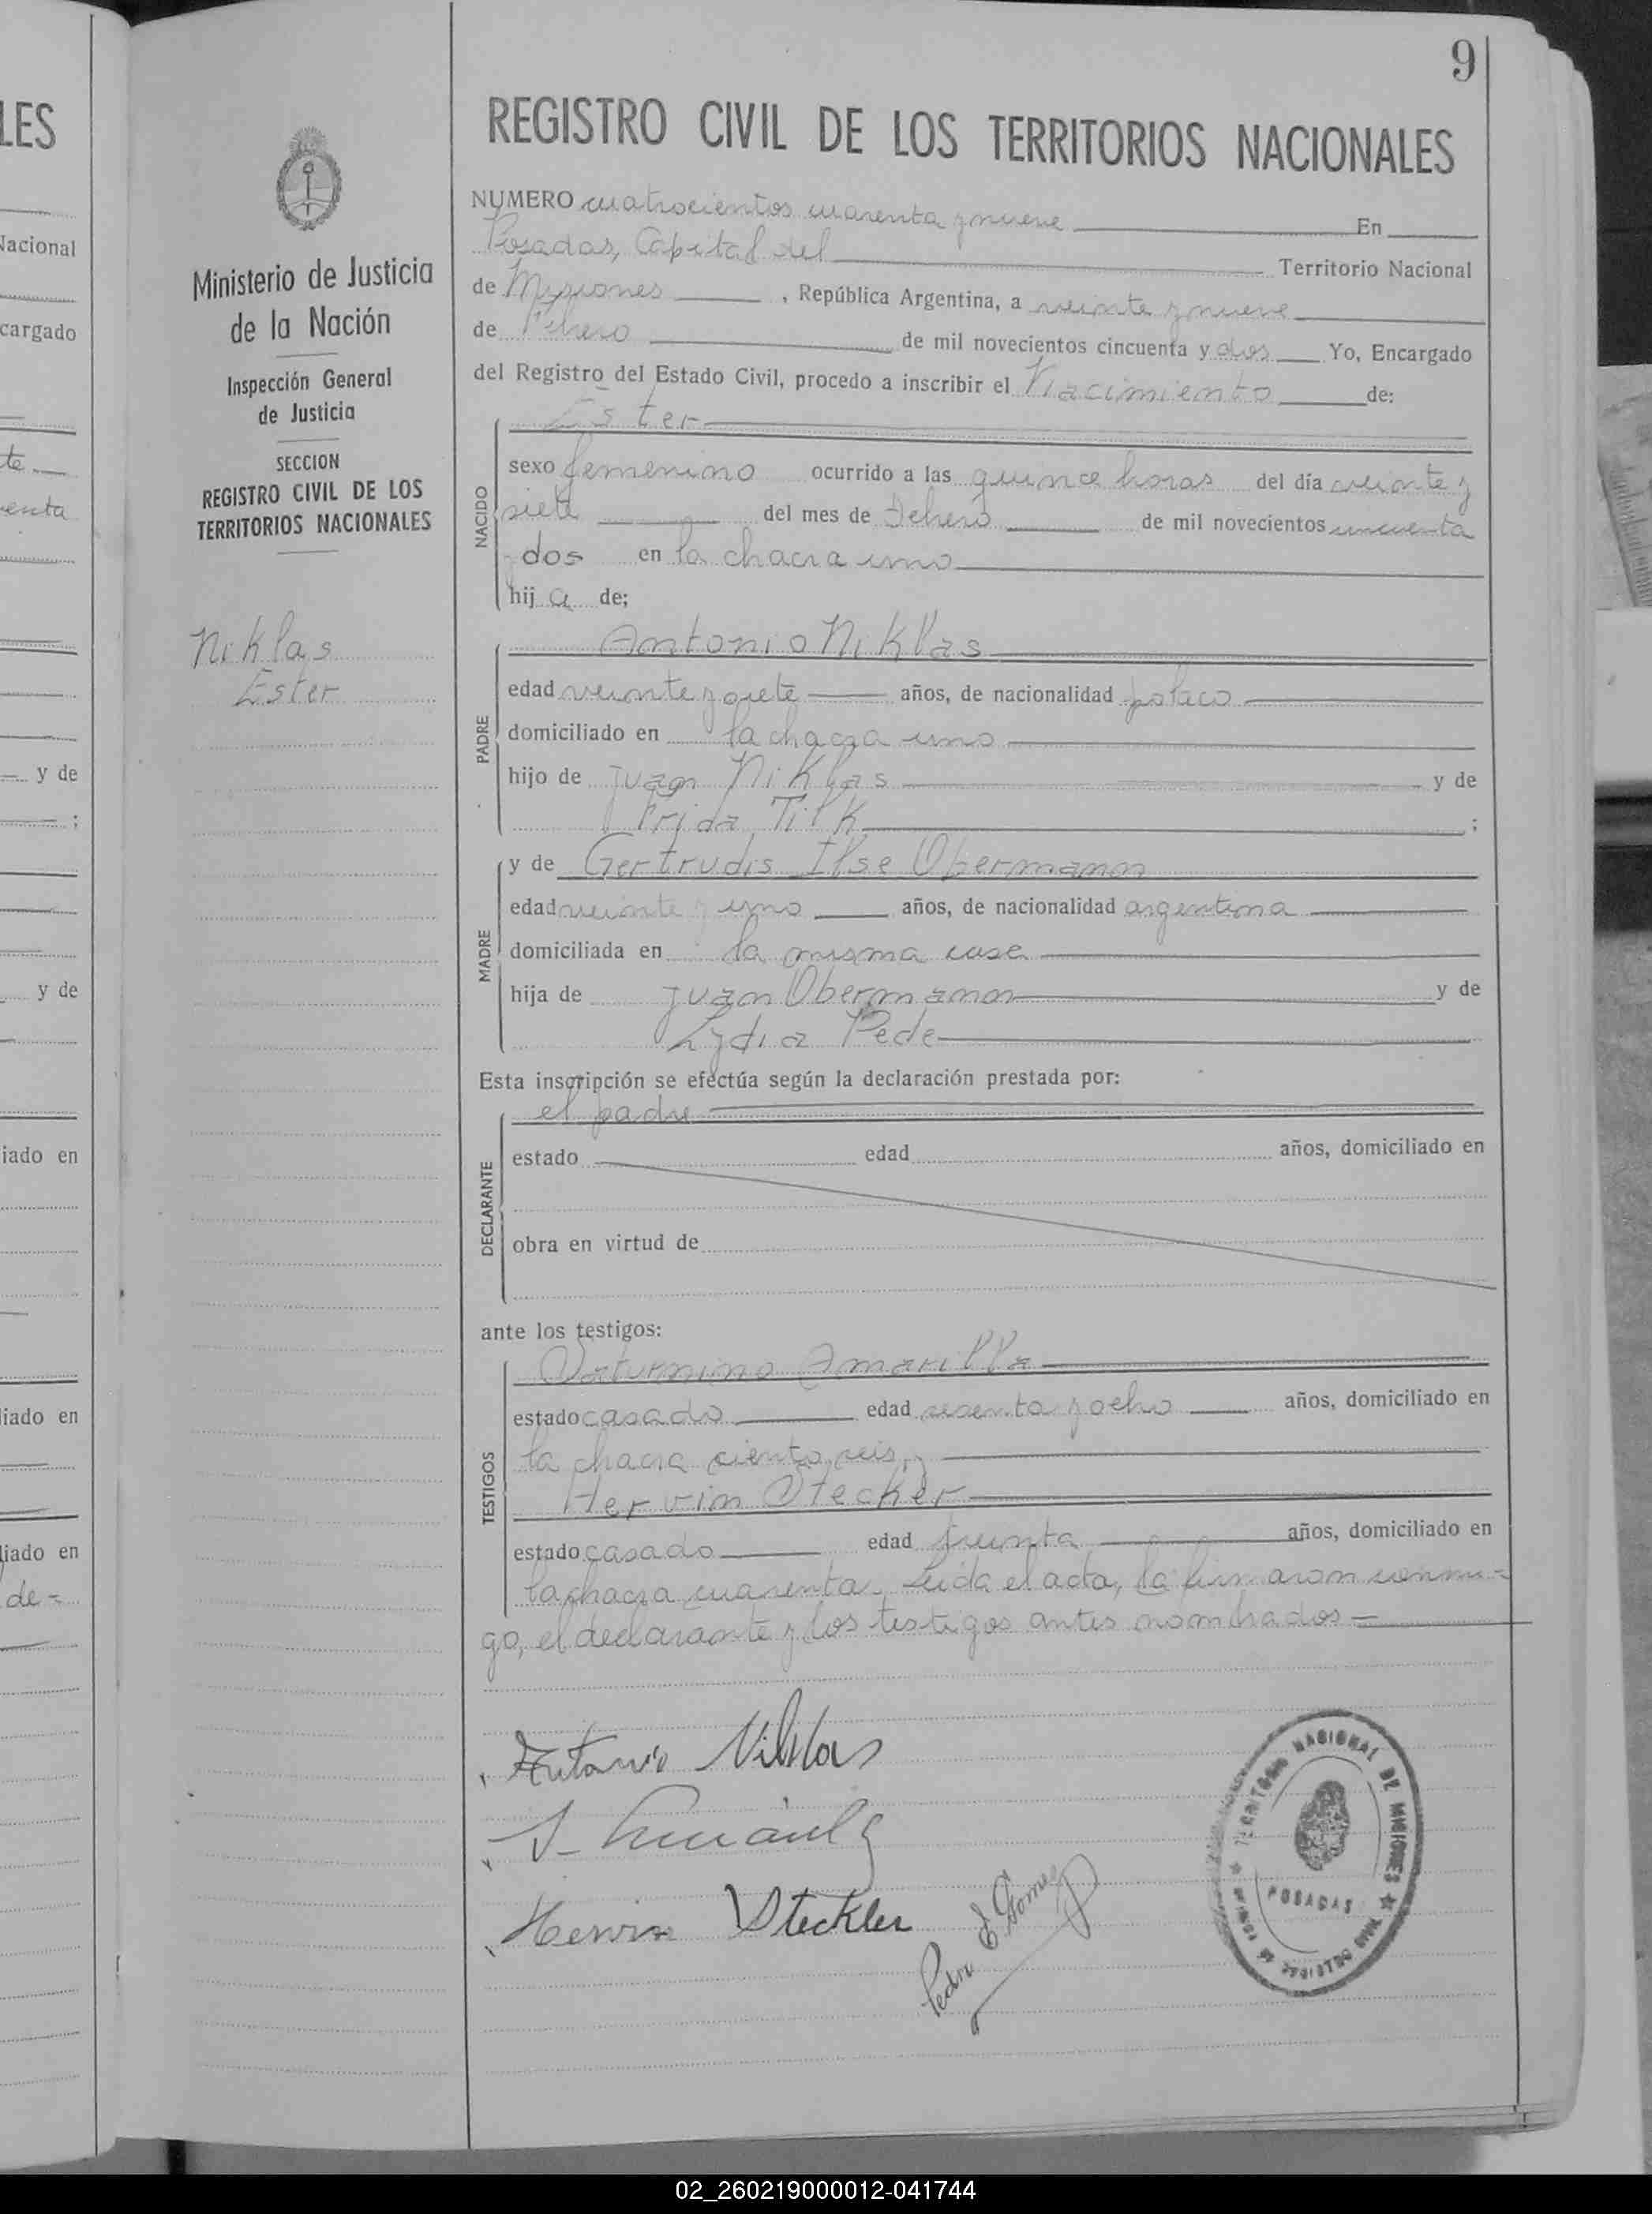 LES
Nacional
cargado
te
enta
y de
;
y de
iado en
liado en
liado en
de=
Ministerio de Justicia
de la Nación
Inspección General
de Justicia
SECCION
REGISTRO CIVIL DE LOS
TERRITORIOS NACIONALES
Niklas
Ester
9
REGISTRO CIVIL DE LOS TERRITORIOS NACIONALES
NUMERO cuatrocientos cuarenta y nueve En
Posadas, Capital del Territorio Nacional
de Misiones , República Argentina, a veinte y nueve
de Febrero de mil novecientos cincuenta y dos Yo, Encargado
del Registro del Estado Civil, procedo a inscribir el Nacimiento de:
Ester
NACIDO
sexo femenino ocurrido a las quince horas del día veinte y
siete del mes de Febrero de mil novecientos cincuenta
y dos en la chacra uno
hija de;
Antonio Niklas
PADRE
edad veinte y siete años, de nacionalidad polaco
domiciliado en la chacra uno
hijo de Juan Niklas y de
Frida Tilk ;
y de Gertrudis Ilse Obermann
MADRE
edad veinte y uno años, de nacionalidad argentina
domiciliada en la misma casa
hija de Juan Obermann y de
Lydia Pede
Esta inscripción se efectúa según la declaración prestada por:
el padre
DECLARANTE
estado edad años, domiciliado en
obra en virtud de
ante los testigos:
Saturnino Amarilla
TESTIGOS
estado casado edad sesenta y ocho años, domiciliado en
la chacra ciento seis, y
Hervin Stecker
estado casado edad treinta años, domiciliado en
la chacra cuarenta. Leida el acta, la firmaron conmi=
go, el declarante y los testigos antes nombrados=
Antonio Niklas
Herwin Steckler
Pedro E. Gomez
TERRITORIO NACIONAL DE MISIONES
POSADAS
02_260219000012-041744